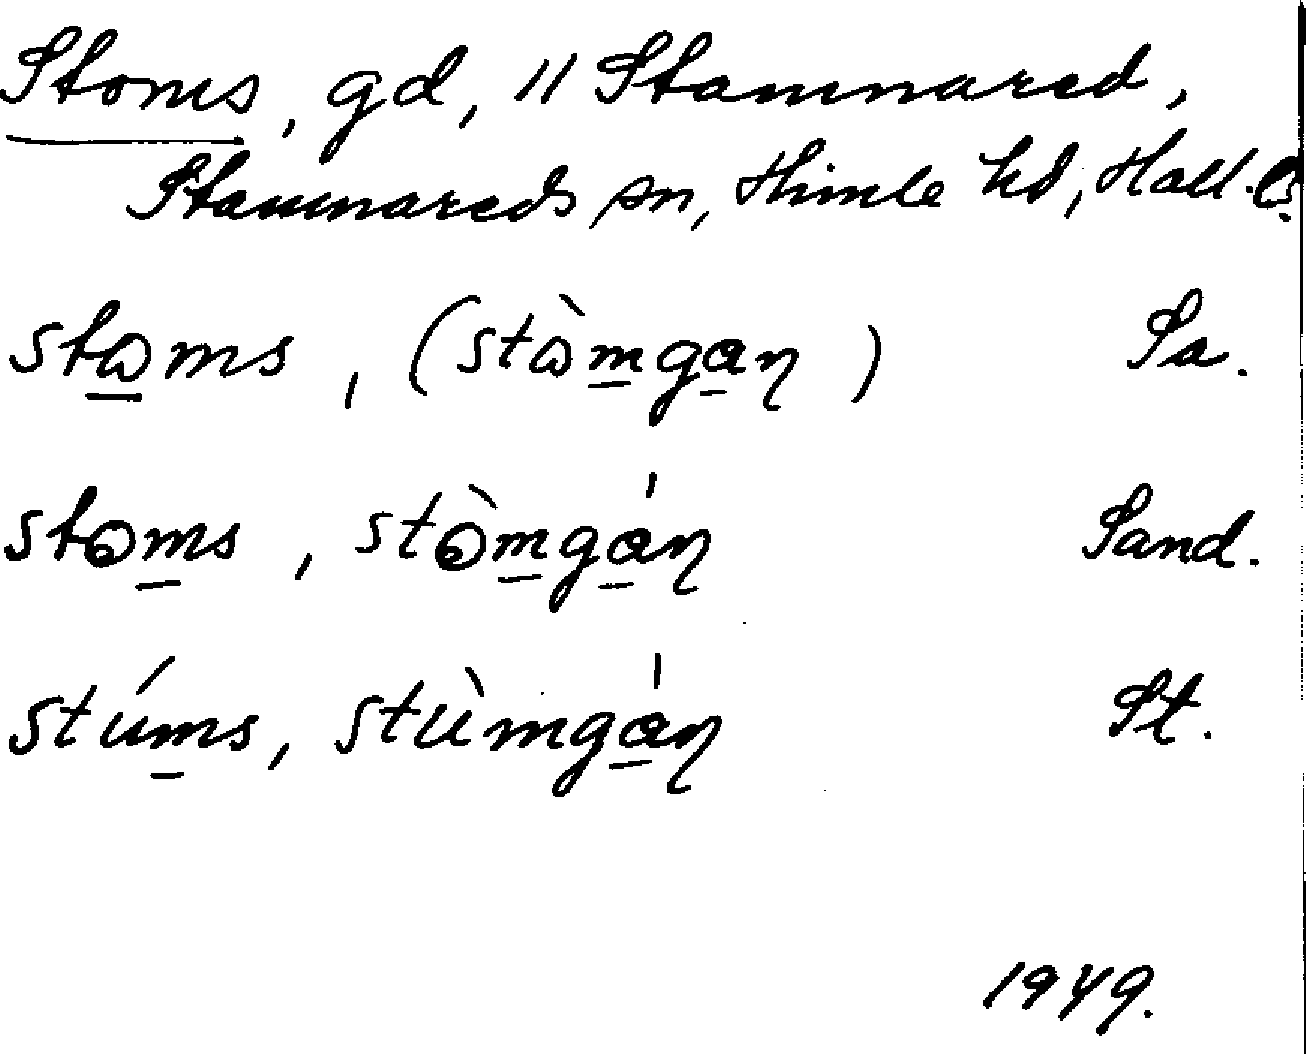 Stoms, gd, // Stamnared,
Stamnareds sn, Himle hd, Hall. l.
stɷm̲s, (stɷ̀m̲ga̲ŋ) Sa.
stɔm̲s, stɔ̀m̲gá̲ŋ Sand.
stúm̲s, stùmgá̲ŋ St.
1949.